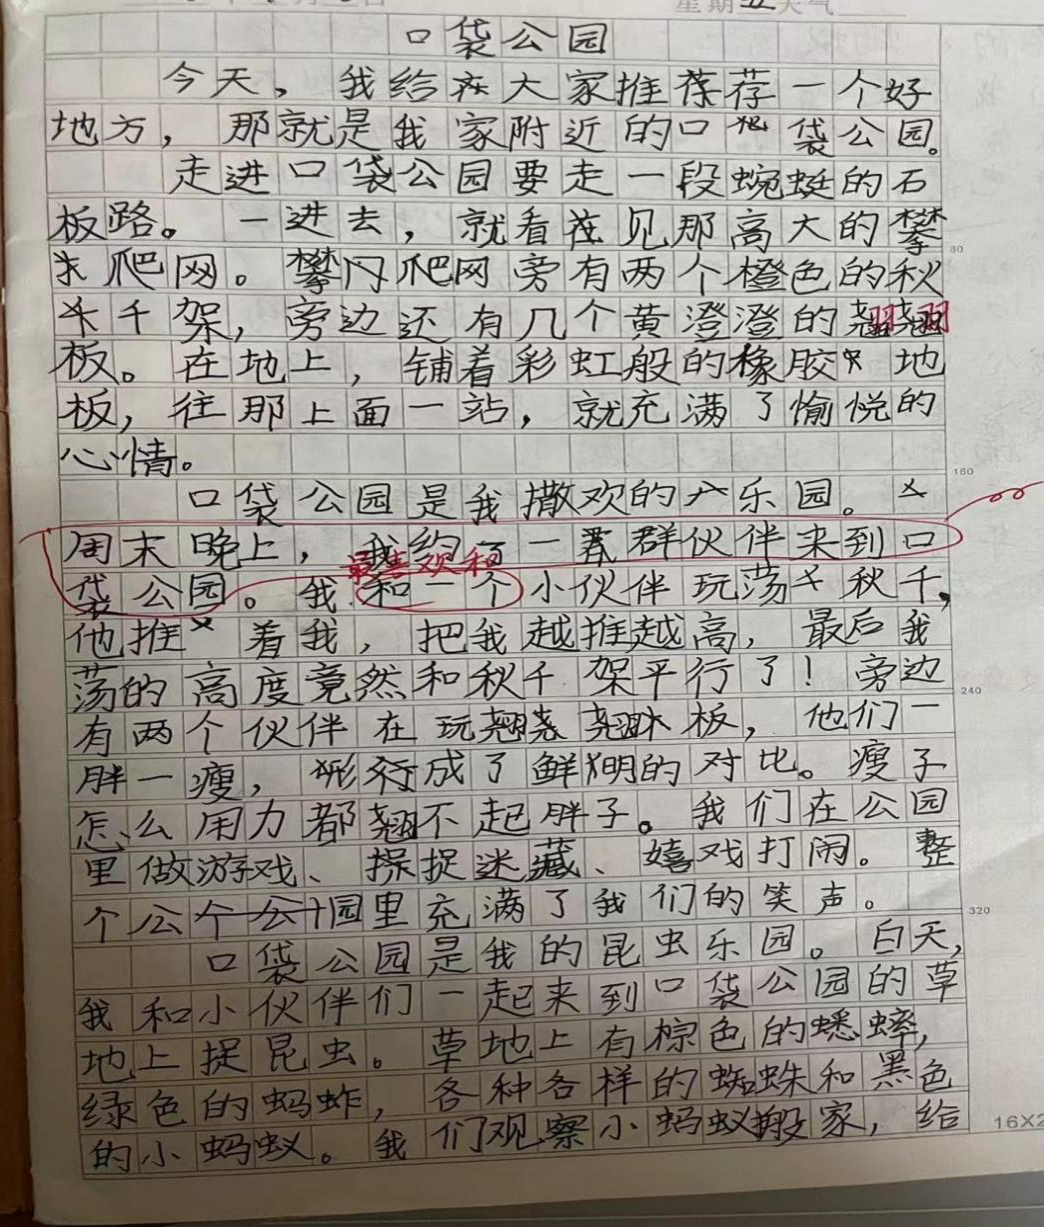 星期五天气
口袋公园
今天，我给大家推荐一个好
地方，那就是我家附近的口袋公园。
走进口袋公园要走一段蜿蜒的石
板路。一进去，就看见那高大的攀
爬网。攀爬网旁有两个橙色的秋
千架，旁边还有几个黄澄澄的翘翘
板。在地上，铺着彩虹般的橡胶地
板，往那上面一站，就充满了愉悦的
心情。
口袋公园是我撒欢的乐园。
周末晚上，我约了一群伙伴来到口
最喜欢和
袋公园。我和一个小伙伴玩荡秋千，
他推着我，把我越推越高，最后我
荡的高度竟然和秋千架平行了！旁边
有两个伙伴在玩翘翘板，他们一
胖一瘦，形成了鲜明的对比。瘦子
怎么用力都翘不起胖子。我们在公园
里做游戏、捉迷藏、嬉戏打闹。整
个公园里充满了我们的笑声。
口袋公园是我的昆虫乐园。白天，
我和小伙伴们一起来到口袋公园的草
地上捉昆虫。草地上有棕色的蟋蟀，
绿色的蚂蚱，各种各样的蜘蛛和黑色
的小蚂蚁。我们观察小蚂蚁搬家，给
80
160
240
320